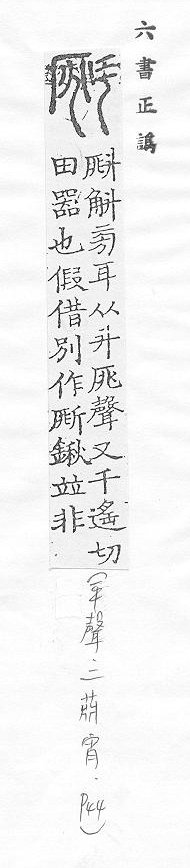 六書正譌
斛旁耳从斗𠩺聲又千遙切
田器也假借別作斪鍬竝非
(平聲.二蕭宵.P44)